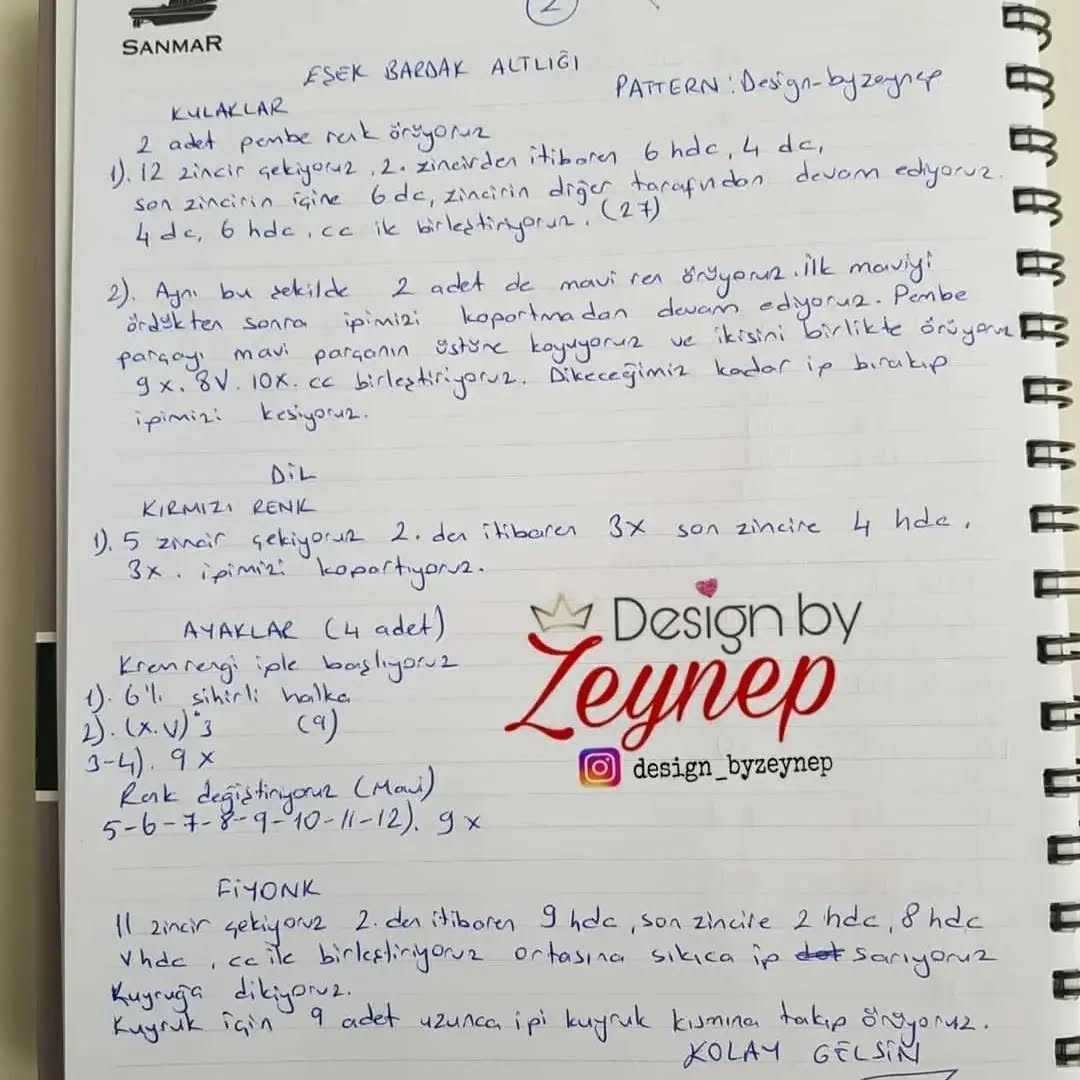 SANMAR
2
EŞEK BARDAK ALTLIĞI
PATTERN : Design-byzeynep
KULAKLAR
2 adet pembe renk örüyoruz
1). 12 zincir çekiyoruz, 2. zincirden itibaren 6 hdc, 4 dc,
son zincirin içine 6 dc, zincirin diğer tarafından devam ediyoruz.
4 dc, 6 hdc, cc ile birleştiriyoruz. (27)
2). Aynı bu şekilde 2 adet de mavi ren örüyoruz. İlk maviyi
ördükten sonra ipimizi koportmadan devam ediyoruz. Pembe
parçayı mavi parçanın üstüne koyuyoruz ve ikisini birlikte örüyoruz
9x. 8V. 10x. cc birleştiriyoruz. Dikeceğimiz kadar ip bırakıp
ipimizi kesiyoruz.
DİL
KIRMIZI RENK
1). 5 zincir çekiyoruz 2. den itibaren 3x son zincire 4 hdc,
3x. ipimizi kopartıyoruz.
AYAKLAR (4 adet)
Krem rengi iple başlıyoruz
1). 6'lı sihirli halka
2). (x.v)*3 (9)
3-4). 9 x
Renk değiştiriyoruz (Mavi)
5-6-7-8-9-10-11-12). 9 x
Design by
Zeynep
design_byzeynep
FİYONK
11 zincir çekiyoruz 2. den itibaren 9 hdc, son zincire 2 hdc, 8 hdc
Vhdc, cc ile birleştiriyoruz ortasına sıkıca ip sarıyoruz
Kuyruğa dikiyoruz.
Kuyruk için 9 adet uzunca ipi kuyruk kısmına takıp örüyoruz.
KOLAY GELSİN